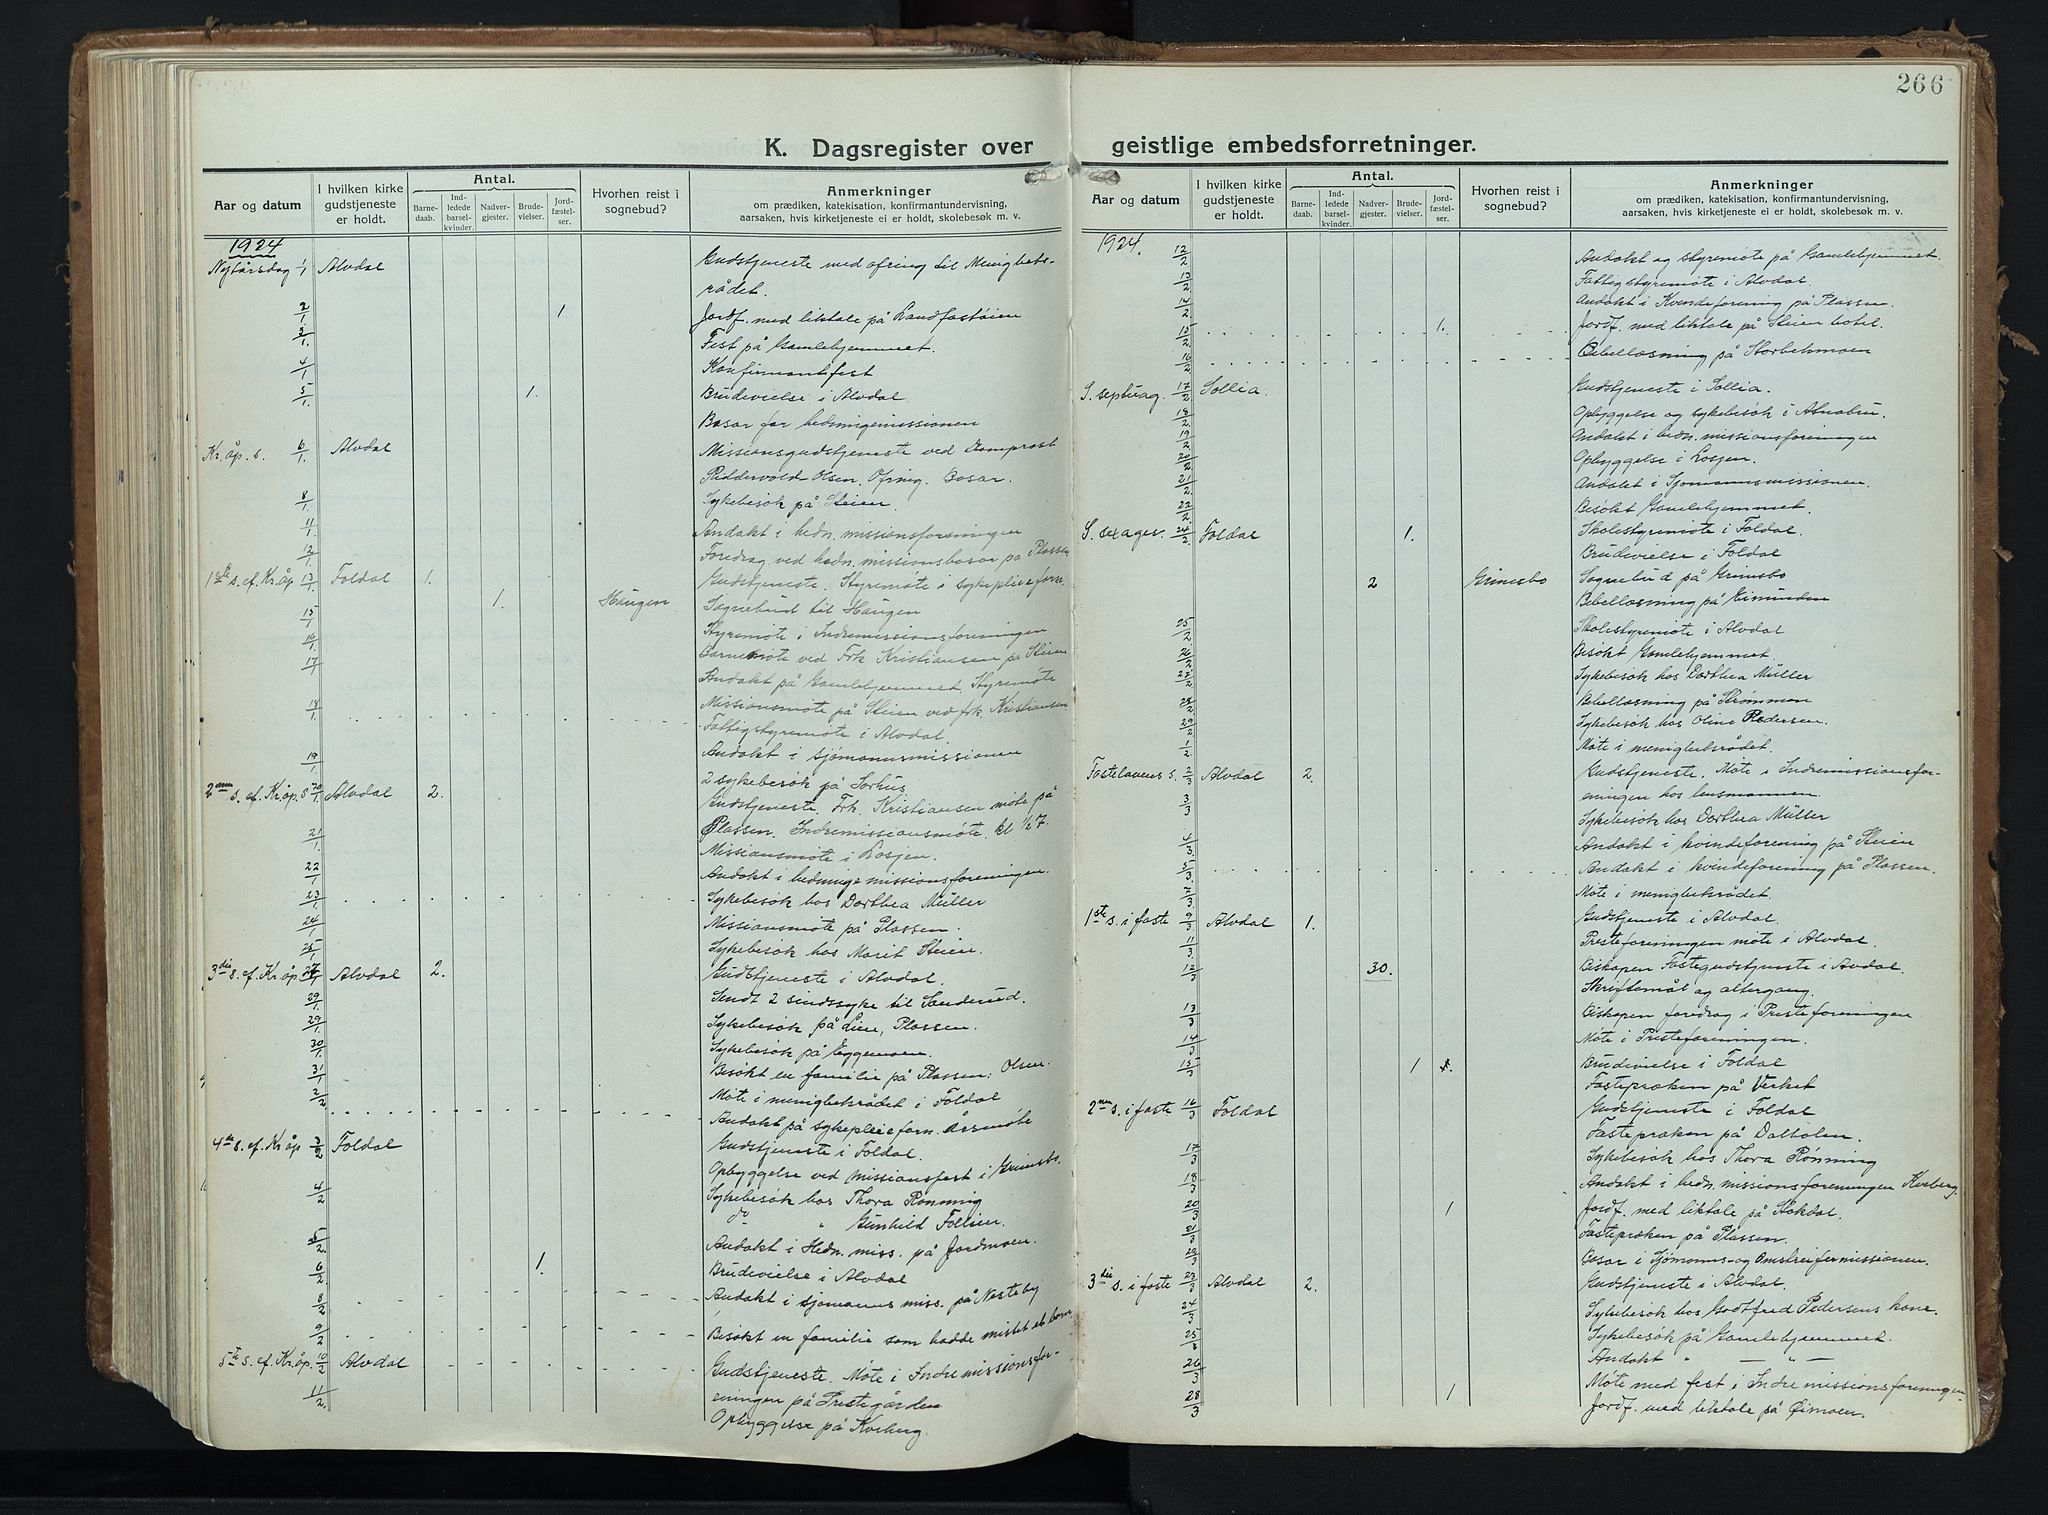 266
K. Dagsregister over geistlige embedsforretninger.
Aar og datum
I hvilken kirke gudstjeneste er holdt.
Antal.
Barnedaab.
Indledede barselkvinder.
Nadvergjester.
Brudevielser.
Jordfæstelser.
Hvorhen reist i sognebud?
Anmerkninger
om prædiken, katekisation, konfirmantundervisning,
aarsaken, hvis kirketjeneste ei er holdt, skolebesøk m. v.
1924
Nytårsdag 1/1 Alvdal Gudstjeneste med ofring til Menighets-
rådet.
2/1. 1 Jordf. med liktale på Randfastøien
3/1. Fest på Gamlehjemmet.
4/1 Konfirmantfest
5/1. 1. Brudevielse i Alvdal
Basar for hedningemissionen
Kr. åp. s. 6/1. Alvdal Missionsgudstjeneste ved Domprost
Riddervold Olsen. Ofring. Basar.
8/1. Sykebesök på Steien
11/1. Andakt i hedn. missionsforeningen
12/1. Foredrag ved hedn. missionsbasar på Plassen
1ste s. ef. Kr. åp 13/1. Foldal 1. Gudstjeneste. Styremöte i sykepleieforn.
15/1 1. Haugen Sognebud til Haugen
16/1. Styremöte i Indremissionsforeningen
17/1 Barnemöte ved Frk Kristiansen på Steien
Andakt på Gamlehjemmet, Styremöte
18/1. Missionsmöte på Steien ved frk. Kristiansen
Fattigstyremöte i Alvdal.
19/1. Andakt i sjömannsmissionen
2 sykebesök på Sorhus
2nen s. ef. Kr. åp. s 20/1. Alvdal 2. Gudstjeneste. Frk. Kristiansen möte på
Plassen. Indremissionsmöte. kl ½7.
21/1. Missionsmöte i Losjen.
22/1 Andakt i hedningemissionsforeningen.
23/1 Sykebesök hos Dorthea Müller
24/1 Missionsmöte på Plassen.
25/1 Sykebesök hos Marit Steien.
3die s. ef. Kr. åp 27/1 Alvdal 2. Gudstjeneste i Alvdal.
29/1. Sendt 2 sindssyke til Sanderud.
29/1. Sykebesök på Lien, Plassen.
30/1. Sykebesök på Eggemoen.
31/1 Besökt en familie på Plassen: Olsen.
2/2 Möte i menighetsrådet i Foldal
Andakt på sykepleieforn. Årsmöte
4de s. ef. Kr åp 3/2 Foldal Gudstjeneste i Foldal.
Opbyggelse ved missionsfest i Grimsbo.
4/2 Sykebesök hos Thora Rönning
do " Gunhild Follien.
5/2. Andakt i Hedn. miss. på Jordmoen.
6/2 1. Brudevielse i Alvdal
8/2 Andakt i sjömanns miss. på Nesteby
9/2 Besökt en familie som hadde mistet et barn
5te s. ef. Kr. åp. 10/2 Alvdal Gudstjeneste. Möte i Indremissionsfor-
eningen på Prestegården
11/2. Opbyggelse på Kveberg
K. Dagsregister over geistlige embedsforretninger.
Aar og datum
I hvilken kirke gudstjeneste er holdt.
Antal.
Barnedaab.
Indledede barselkvinder.
Nadvergjester.
Brudevielser.
Jordfæstelser.
Hvorhen reist i sognebud?
Anmerkninger
om prædiken, katekisation, konfirmantundervisning,
aarsaken, hvis kirketjeneste ei er holdt, skolebesøk m. v.
1924. 12/2 Andakt og styremöte på Gamlehjemmet.
13/2 Fattigstyremöte i Alvdal.
14/2. Andakt i Kvindeforening på Plassen.
15/2 1. Jordf. med liktale på Steien hotel.
16/2 Bibellæsning på Storbekmoen
S. septuag. 17/2 Sollia. Gudstjeneste i Sollia.
18/2. Opbyggelse og sykebesök i Atnabru.
19/2 Andakt i hedn. missionsforeningen
20/2. Opbyggelse i Losjen.
21/2. Andakt i Sjömannsmissionen.
22/2 Besökt Gamlehjemmet.
S. sexages. 24/2. Foldal 1. Skolestyremöte i Foldal.
Brudevielse i Foldal
2 Grimsbo Sognebud på Grimsbo
Bibellæsning på Eimunden
25/2 Skolestyremöte i Alvdal
26/2 Besökt Gamlehjemmet.
27/2 Sykebesök hos Dorthea Müller
28/2 Bibellæsning på Strømmen
29/2 Sykebesök hos Oline Pedersen.
1/2 Möte i menighetsrådet.
Fastelavens s. 2/3 Alvdal 2. Gudstjeneste. Möte i Indremissionsfor-
eningen hos lensmannen.
3/3 Sykebesök hos Dorthea Müller
4/3. Andakt i kvindeforening på Steien
5/3. Andakt i kvindeforening på Plassen.
7/3. Möte i menighetsrådet.
1ste s. i faste 9/3 Alvdal 1. Gudstjeneste i Alvdal.
11/3. Presteforeningen möte i Alvdal.
12/3 30. Biskopen Fastegudstjeneste i Alvdal.
Skriftemål og altergang.
13/3 Biskopen foredrag i Presteforeningen
14/3 Möte i Presteforeningen.
15/3 1 Brudevielse i Foldal
Fastepræken på Verket
2nen s. i faste 16/3 Foldal Gudstjeneste i Foldal
Fastepræken på Dalholen.
17/3 Sykebesök hos Thora Rönning
18/3 Andakt i hedn. missionsforeningen Kveberg.
20/3 1 Jordf. med liktale på Stokdal.
21/3 Fastepræken på Plassen.
22/3 Basar i Sjömanns- og Omstreifermissionen.
3die s. i faste 23/3 Alvdal 2. Gudstjeneste i Alvdal.
24/3 Sykebesök hos Godtfred Pedersens kone.
25/3 Sykebesök på Gamlehjemmet.
26/3 Andakt " — " —
Möte med fest i Indremissionsforeningen
28/3 1 Jordf. med liktale på Øimoen.